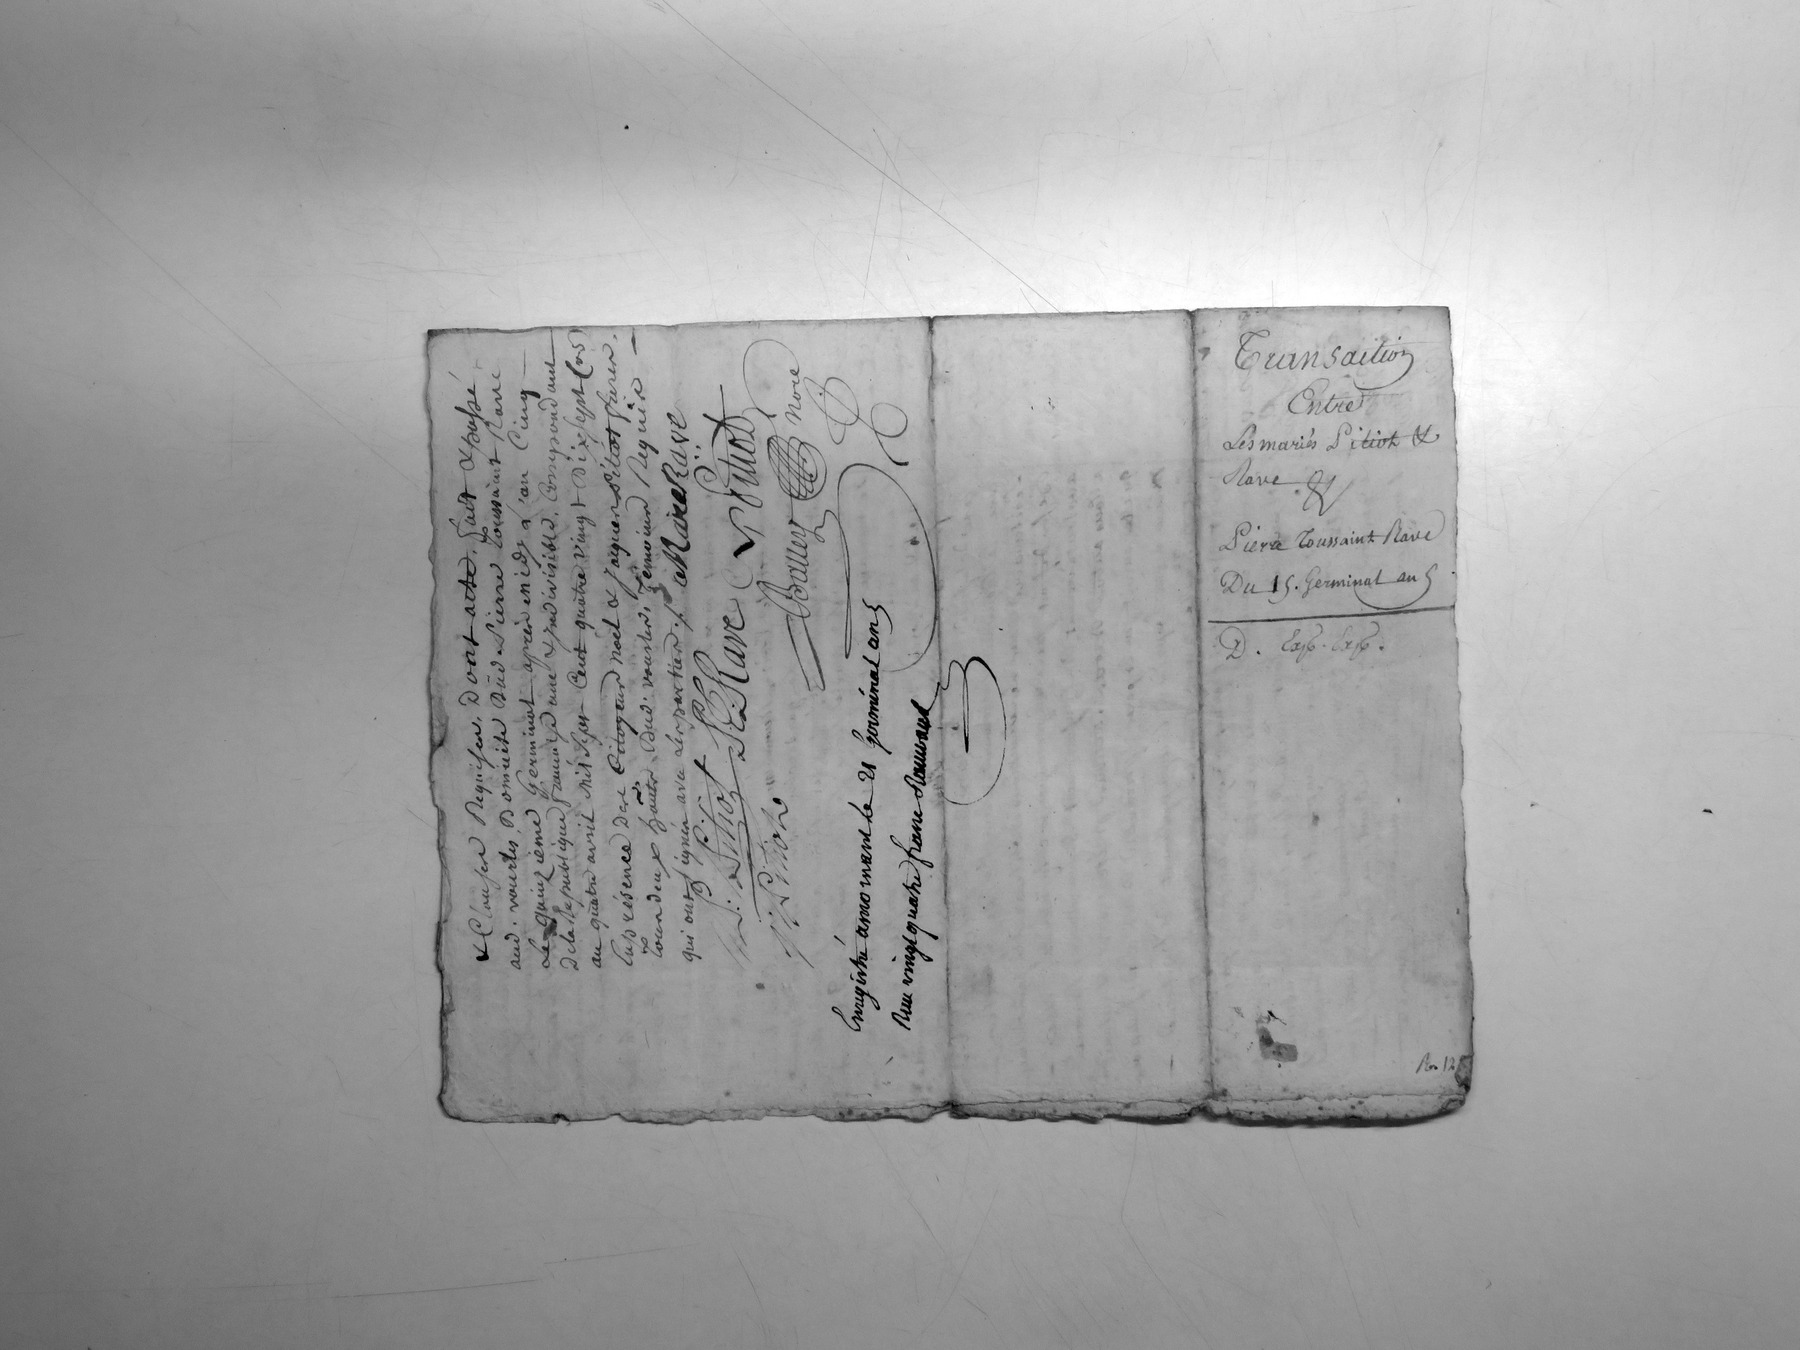 & Clauses Requises, Dont acte, fait & passé
aud. vourles, Domicile Dud. Pierre toussaint Rave
Le quinzieme Germinal après midy L'an Cinq
De la Republique francaise une & Indivisible, Correspondant
au quatre avril Mil Sept Cent quatre vingt Dix Sept (vs)
En présence Des Citoyens Noel & Jaques Pitiot freres,
tous deux Dud. vourles, Temoins Requis
qui ont signés avec Les parties ./.
Marie Rave
Pitiot P. t. Rave Pitiot
Pitiot
Nore
Enregistré a le 21 Germinal an 5
Reçu vingt quatre francs
Transaction
Entre
Les mariés Pitiot &
Rave &
Pierre Toussaint Rave
Du 15. Germinal an 5
D. Exp. Exp.